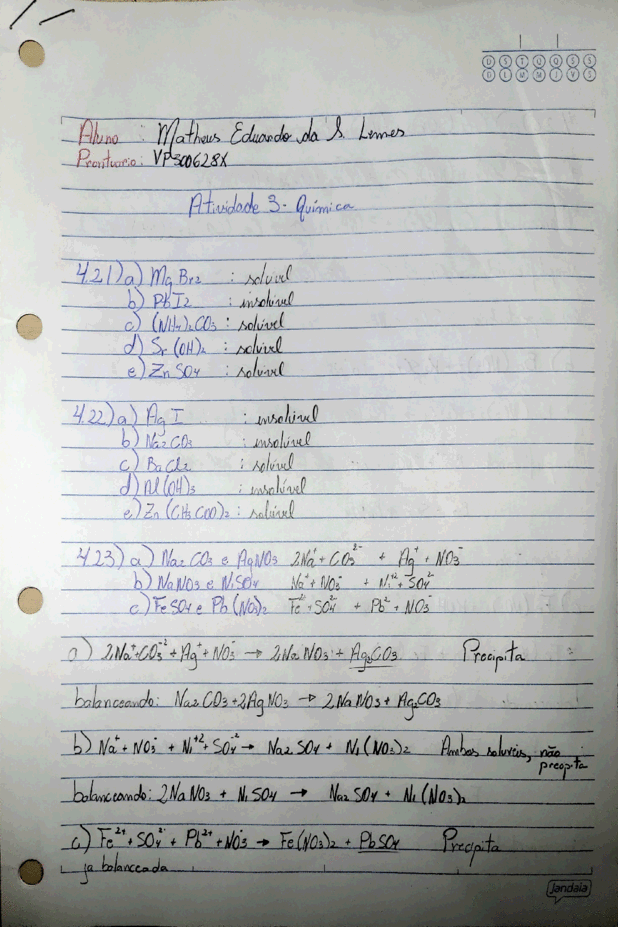 D S T Q Q S S
D L M M J V S
Aluno : Matheus Eduardo da S. Lemes
Prontuario: VP300628X
Atividade 3- Química
4.21) a) MgBr2 : soluvel
b) PbI2 : insolúvel
c) (NH4)2CO3 : solúvel
d) Sr(OH)2 : solúvel
e) ZnSO4 : solúvel
4.22) a) AgI : insolúvel
b) Na2CO3 : insolúvel
c) BaCl2 : solúvel
d) Al(OH)3 : insolúvel
e) Zn(CH3COO)2 : solúvel
4.23) a) Na2CO3 e AgNO3 2Na+ + CO3 2- + Ag+ + NO3-
b) NaNO3 e NiSO4 Na+ + NO3- + Ni+2 + SO4 2-
c) FeSO4 e Pb(NO3)2 Fe2+ + SO4 2- + Pb2+ + NO3-
a) 2Na+ + CO3-2 + Ag+ + NO3- → 2NaNO3 + Ag2CO3 Precipita
balanceando: Na2CO3 + 2AgNO3 → 2NaNO3 + Ag2CO3
b) Na+ + NO3- + Ni+2 + SO4-2 → Na2SO4 + Ni(NO3)2 Ambos soluveis, não
precipita
balanceando: 2NaNO3 + NiSO4 → Na2SO4 + Ni(NO3)2
c) Fe2+ + SO4 2- + Pb2+ + NO3- → Fe(NO3)2 + PbSO4 Precipita
ja balanceada
jandaia